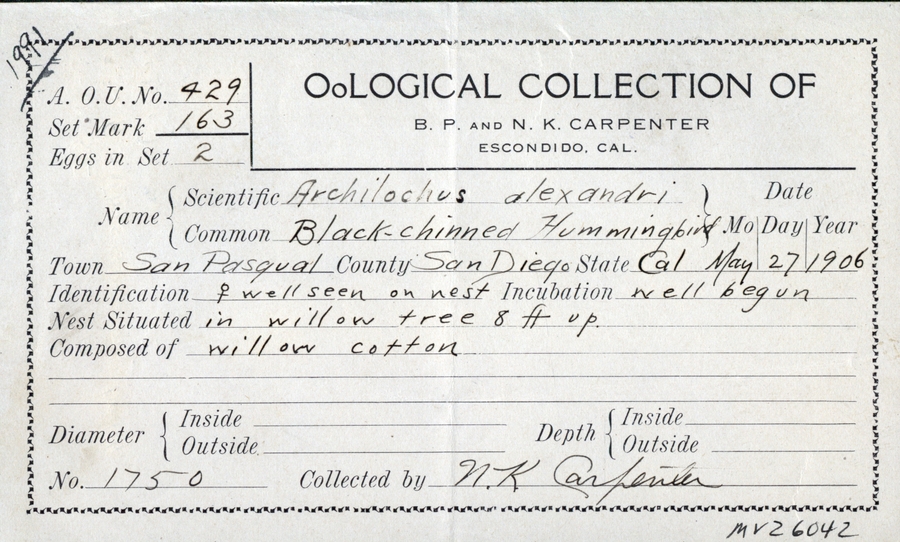 1991
OoLOGICAL COLLECTION OF
B. P. AND N. K. CARPENTER
ESCONDIDO, CAL.
A. O. U. No. 429
Set Mark 163
Eggs in Set 2
Name { Scientific Archilochus alexandri } Date
Common Black-chinned Hummingbird Mo Day Year
Town San Pasqual County San Diego State Cal May 27 1906
Identification ♀ well seen on nest Incubation well begun
Nest Situated in willow tree 8 ft up.
Composed of willow cotton
Diameter { Inside Depth { Inside
Outside Outside
No. 1750 Collected by N. K Carpenter
MVZ 6042